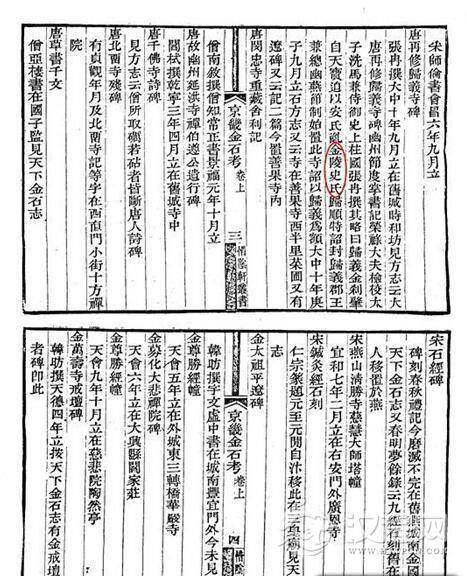 宋師倫書會昌六年九月立
唐再修歸義寺碑
張冉撰大中十年九月立在舊城時和坊見方志云大
唐再修歸義寺碑幽州節度掌書記榮祿大夫檢校太
子洗馬兼侍御史上柱國張冉撰其略曰歸義金剎肇
自天寶迨以安氏亂金陵史氏歸順特詔封歸義郡王
兼總幽燕節制始置此寺詔以歸義為額大中十年庚
子九月立石方志又云寺在善果寺西半里菜圃又有
遼碑又云記二篇今置善果寺內
唐閔忠寺重藏舍利記
京畿金石考 卷上 三 惜陰軒叢書
僧南敘撰僧知常正書景福元年十月立
唐故幽州延洪寺律師伯遵公遺行碑
閻栻撰乾寧三年四月立在舊城寺中
唐千佛寺詩碑
見方志云僧所取礪若砧者皆斷唐人詩碑
唐北酉寺殘碑
有貞觀年月及北酉寺記等字在西直門小街十方禪
院
唐草書千文
僧亞棲書在國子監見天下金石志
宋石經碑
碑刻春秋禮記今磨滅不完在舊燕城南金國
天下金石志又春明夢餘錄云九經刻舊在
人移置於燕
宋燕山清勝寺慈慧大師塔幢
宣和七年二月立在右安門外廣恩寺
宋鍼灸經石刻
仁宗篆題元至元間自汴移此在三皇廟見天
志
金太祖平遼碑
京畿金石考 卷上 四 惜陰
韓昉撰文虛中書在城南豐宜門外今未見
金尊勝經幢
天會五年立在外城東三轉橋華嚴寺
金募化大悲禪院碑
天會六年立在大興縣閻家莊
金尊勝經幢
天會九年十月立在慈悲院陶然亭
金萬壽寺戒壇碑
韓昉撰天德四年立按天下金石志有金戒壇
者碑卽此